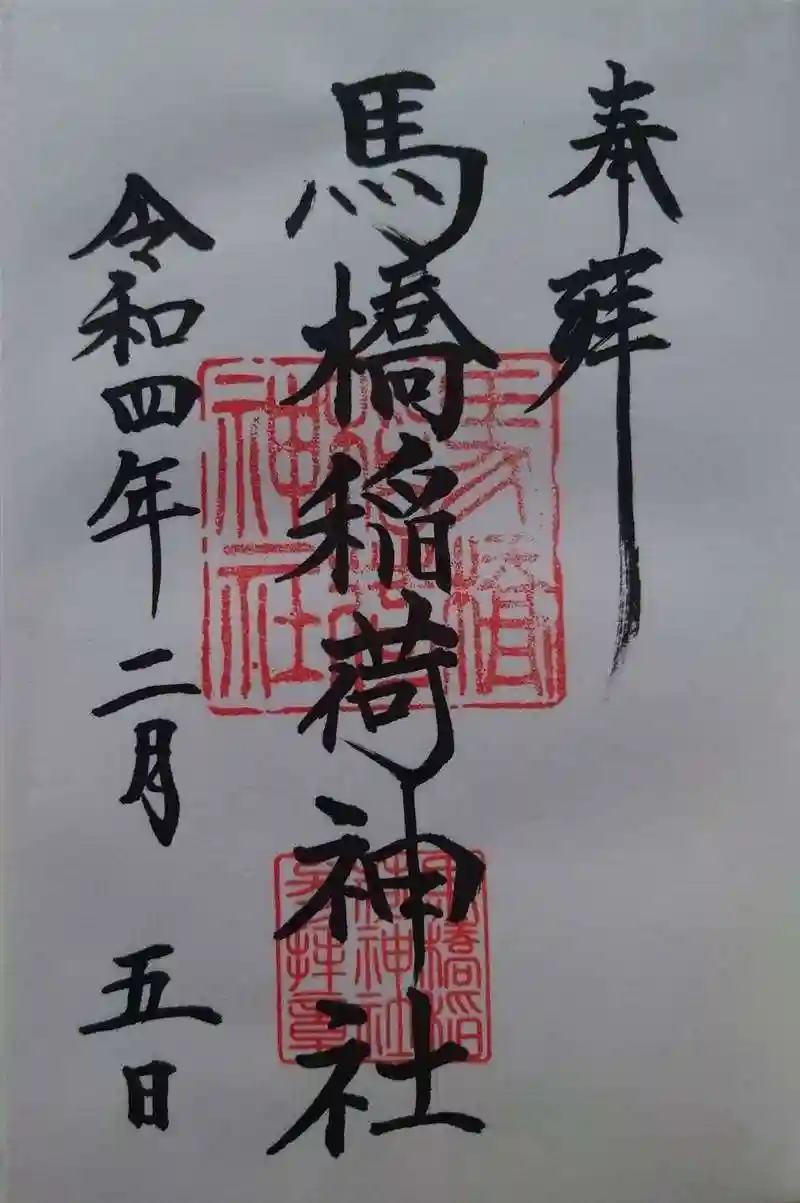 奉拝
馬橋稲荷神社
令和四年二月五日
馬橋
稲荷
神社
馬橋稲
荷神社
参拝章